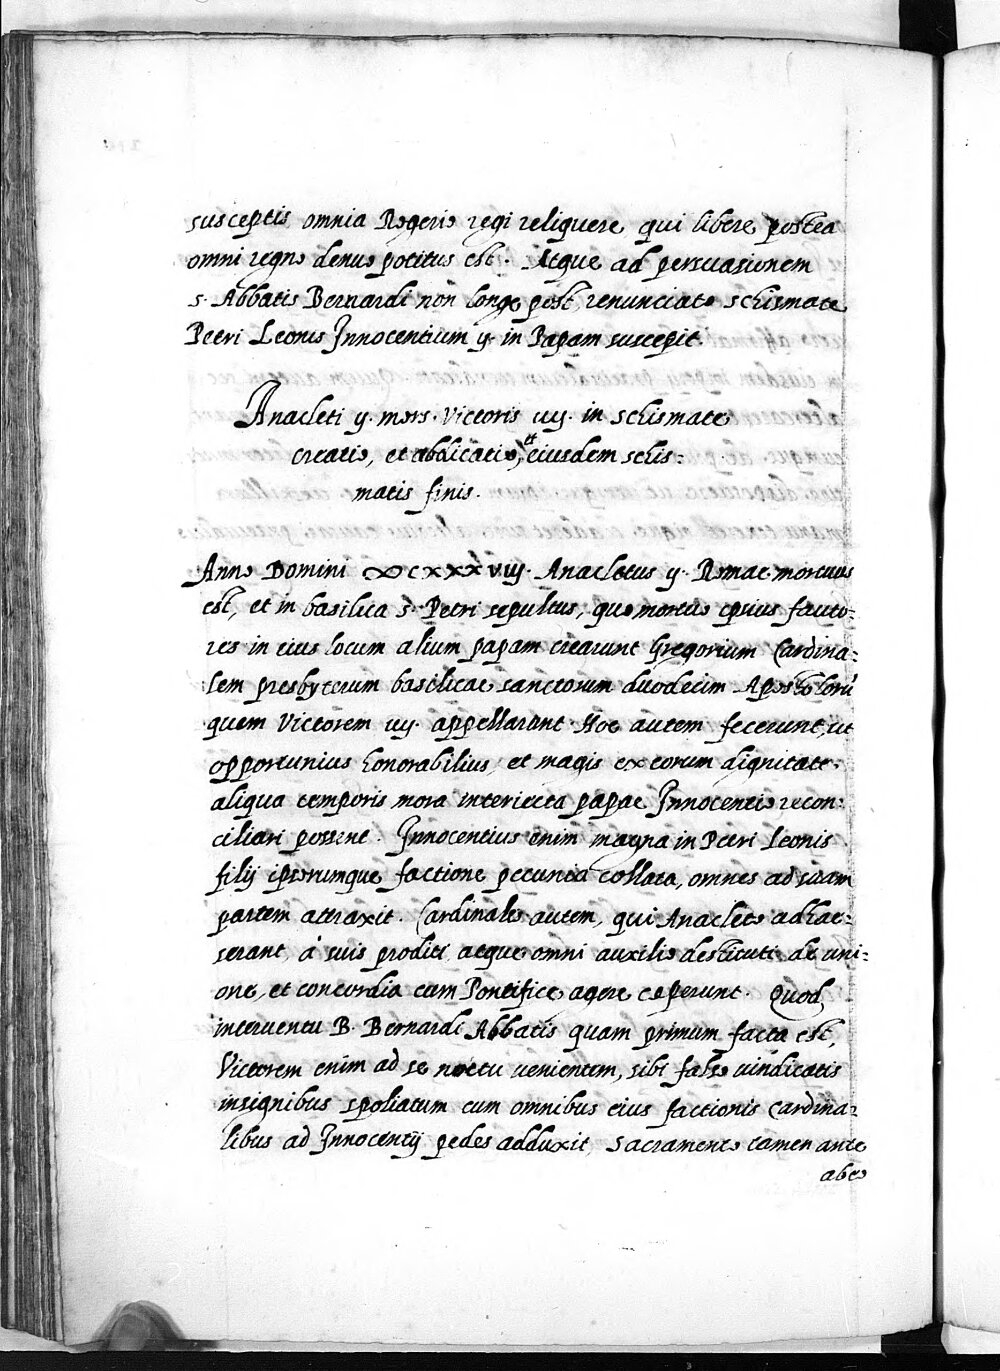 susceptis omnia Rogerio regi reliquere, qui libere postea
omni regno denuo potitus est. Atque ad persuasionem
s. Abbatis Bernardi non longe post, renunciato schismate
Petri Leonis Innocentium ij. in Papam suscepit.
Anacleti ij. mors. Victoris iiij. in schismate
creatio, et abdicatio, et eiusdem schis:
matis finis.
Anno Domini ∞cxxxviij. Anacletus ij. Romae mortuus
est, et in basilica s. Petri sepultus, quo mortuo ipsius fauto:
res in eius locum alium papam crearunt Gregorium Cardina:
lem presbyterum basilicae sanctorum duodecim Apostolorū
quem Victorem iiij. appellarunt. Hoc autem fecerunt, ut
opportunius honorabilius, et magis ex eorum dignitate,
aliqua temporis mora interiecta papae Innocentio recon:
ciliari possent. Innocentius enim magna in Petri Leonis
filij ipsorumque factione pecunia collata, omnes ad suam
partem attraxit. Cardinales autem, qui Anacleto adhae:
serant, à suis proditi, atque omni auxilio destituti de uni:
one, et concordia cum Pontifice agere ceperunt. Quod
interuentu B. Bernardi Abbatis quam primum facta est,
Victorem enim ad se noctu venientem, sibi falso vindicatis
insignibus spoliatum cum omnibus eius factionis Cardina:
libus ad Innocentij pedes adduxit, sacramento tamen ante
abeo